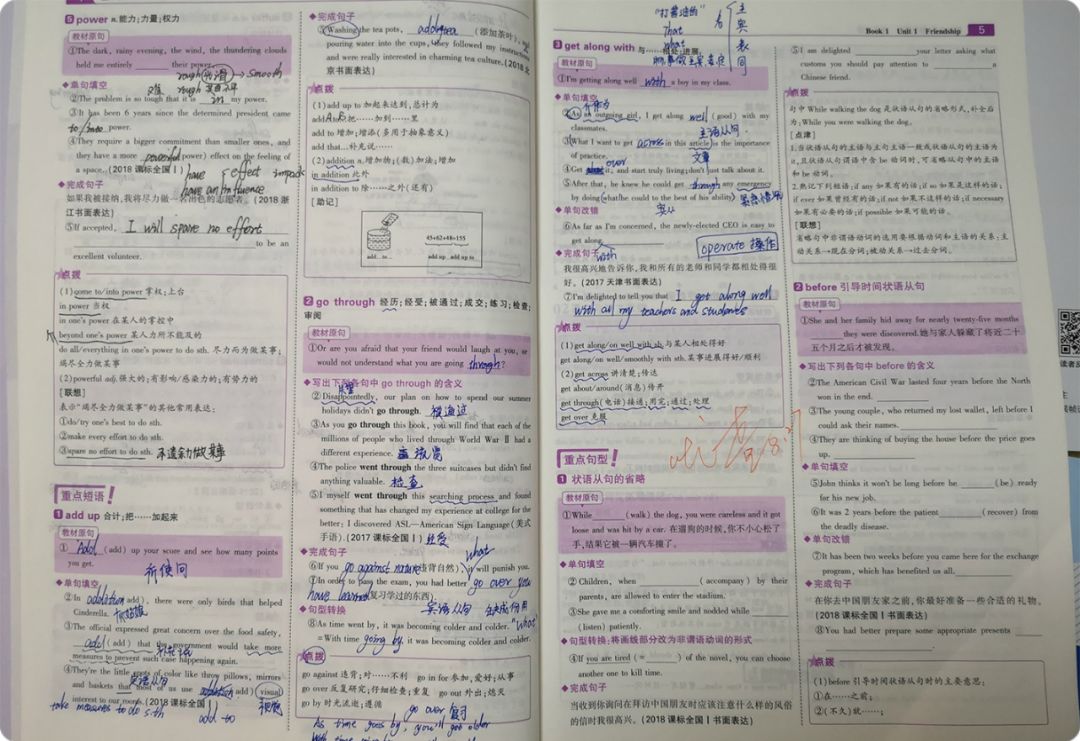 5 power n.能力;力量;权力
教材原句
①The dark, rainy evening, the wind, the thundering clouds
held me entirely their power.
rough(粗糙)→smooth
◆单句填空
②The problem is so tough that it is in my power.
③It has been 6 years since the determined president came
to/into power.
④They require a bigger commitment than smaller ones, and
they have a more powerful(power) effect on the feeling of
a space..(2018课标全国Ⅰ)
have effect
have an influence
◆完成句子
如果我被接纳,我将尽力做一名出色的志愿者。(2018浙
江书面表达)
⑤If accepted, I will spare no effort
to be an
excellent volunteer.
点拨
(1)come to/into power 掌权;上台
in power 当权
in one's power 在某人的掌控中
beyond one's power 某人力所不能及的
do all/everything in one's power to do sth. 尽力而为做某事;
竭尽全力做某事
(2)powerful adj.强大的;有影响/感染力的;有势力的
[联想]
表示“竭尽全力做某事”的其他常用表达:
①do/try one's best to do sth.
②make every effort to do sth.
③spare no effort to do sth. 不遗余力做某事
重点短语!
1 add up 合计;把……加起来
教材原句
① Add (add) up your score and see how many points
you get.
祈使句
◆单句填空
②In addition(add), there were only birds that helped
Cinderella.
③The official expressed great concern over the food safety,
add(add) that the government would take more
measures to prevent such case happening again.
④They're the little spots of color like throw pillows, mirrors
and baskets that most of us use addition(add) (visual)
interest to our rooms.(2018课标全国Ⅰ)
take measures to do sth add to
◆完成句子
⑤Washing the tea pots, add tea (添加茶叶),
pouring water into the cups, they followed my instructions
and were really interested in charming tea culture.(2018北
京书面表达)
点拨
(1)add up to 加起来达到,总计为
add A to B 把……加到……里
add to 增加;增添(多用于抽象意义)
add that...补充说……
(2)addition n.增加物;(数)加法;增加
in addition 此外
in addition to 除……之外(还有)
[助记]
45+62+48=155
add...to... add up add up to
2 go through 经历;经受;被通过;成交;练习;检查;
审阅
教材原句
①Or are you afraid that your friend would laugh at you, or
would not understand what you are going through?
◆写出下列各句中 go through 的含义
②Disappointedly, our plan on how to spend our summer
holidays didn't go through. 被通过
③As you go through this book, you will find that each of the
millions of people who lived through World War Ⅱ had a
different experience. 查阅
④The police went through the three suitcases but didn't find
anything valuable. 检查
⑤I myself went through this searching process and found
something that has changed my experience at college for the
better; I discovered ASL—American Sign Language (美式
手语).(2017课标全国Ⅰ) 经受
◆完成句子
what
⑥If you go against nature(违背自然), it will punish you.
⑦In order to pass the exam, you had better go over you
have learned(复习学过的东西).
◆句型转换
宾语从句
⑧As time went by, it was becoming colder and colder. "what"
=With time going by, it was becoming colder and colder.
点拨
go against 违背;对……不利 go in for 参加,爱好;从事
go over 反复研究;仔细检查;重复 go out 外出;熄灭
go by 时光流逝;遵循
go over 复习
As time goes by, you'll get older
Book 1 Unit 1 Friendship 5
that
what
主 宾 表 同
3 get along with 与……相处;进展
教材原句
①I'm getting along well with a boy in my class.
◆单句填空
作为
②As an outgoing girl, I get along well (good) with my
classmates.
主语从句
③What I want to get across in this article is the importance
of practice.
文章
④Get over, and start truly living; don't just talk about it.
⑤After that, he knew he could get through any emergency
by doing what(he could to the best of his ability).
紧急情况
◆单句改错
⑥As far as I'm concerned, the newly-elected CEO is easy to
get along.
with
operate 操作
◆完成句子
我很高兴地告诉你,我和所有的老师和同学都相处得很
好。(2017天津书面表达)
⑦I'm delighted to tell you that I get along well
with all my teachers and students
点拨
(1)get along/on well with sb 与某人相处得好
get along/on well/smoothly with sth.某事进展得好/顺利
(2)get across 讲清楚;传达
get about/around(消息)传开
get through(电话)接通;用完;通过;处理
get over 克服
重点句型!
1 状语从句的省略
教材原句
①While (walk) the dog, you were careless and it got
loose and was hit by a car. 在遛狗的时候,你不小心松了
手,结果它被一辆汽车撞了。
◆单句填空
②Children, when (accompany) by their
parents, are allowed to enter the stadium.
③She gave me a comforting smile and nodded while
(listen) patiently.
◆句型转换:将画线部分改为非谓语动词的形式
④If you are tired (= ) of the novel, you can choose
another one to kill time.
◆完成句子
当收到你询问在拜访中国朋友时应该注意什么样的风俗
的信时我很高兴。(2018课标全国Ⅰ书面表达)
⑤I am delighted your letter asking what
customs you should pay attention to a
Chinese friend.
点拨
句中 While walking the dog 是状语从句的省略形式,补全后
为:While you were walking the dog。
[点津]
1.当状语从句的主语与主句主语一致或状语从句的主语为
it,且状语从句谓语中含 be 动词时,可省略从句中的主语
和 be 动词。
2.熟记下列短语:if any 如果有的话;if no 如果是这样的话;
if ever 如果曾经有的话;if not 如果不这样的话;if necessary
如果有必要的话;if possible 如果可能的话。
[联想]
省略句中非谓语动词的选用要根据动词和主语的关系:主
动关系→现在分词;被动关系→过去分词。
2 before 引导时间状语从句
教材原句
①She and her family hid away for nearly twenty-five months
they were discovered.她与家人躲藏了将近二十
五个月之后才被发现。
◆写出下列各句中 before 的含义
②The American Civil War lasted four years before the North
won in the end.
③The young couple, who returned my lost wallet, left before I
could ask their names.
④They are thinking of buying the house before the price goes
up.
◆单句填空
⑤John thinks it won't be long before he (be) ready
for his new job.
⑥It was 2 years before the patient (recover) from
the deadly disease.
◆单句改错
⑦It has been two weeks before you came here for the exchange
program, which has benefited us all.
◆完成句子
在你去中国朋友家之前,你最好准备一些合适的礼物。
(2018课标全国Ⅰ书面表达)
⑧You had better prepare some appropriate presents
.
点拨
(1)before 引导时间状语从句时的主要意思:
①在……之前;
②(不久)就……;